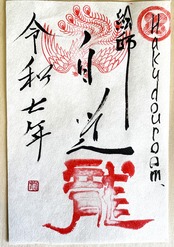 Hakudouroom.
絵師
白道
龍
令和七年